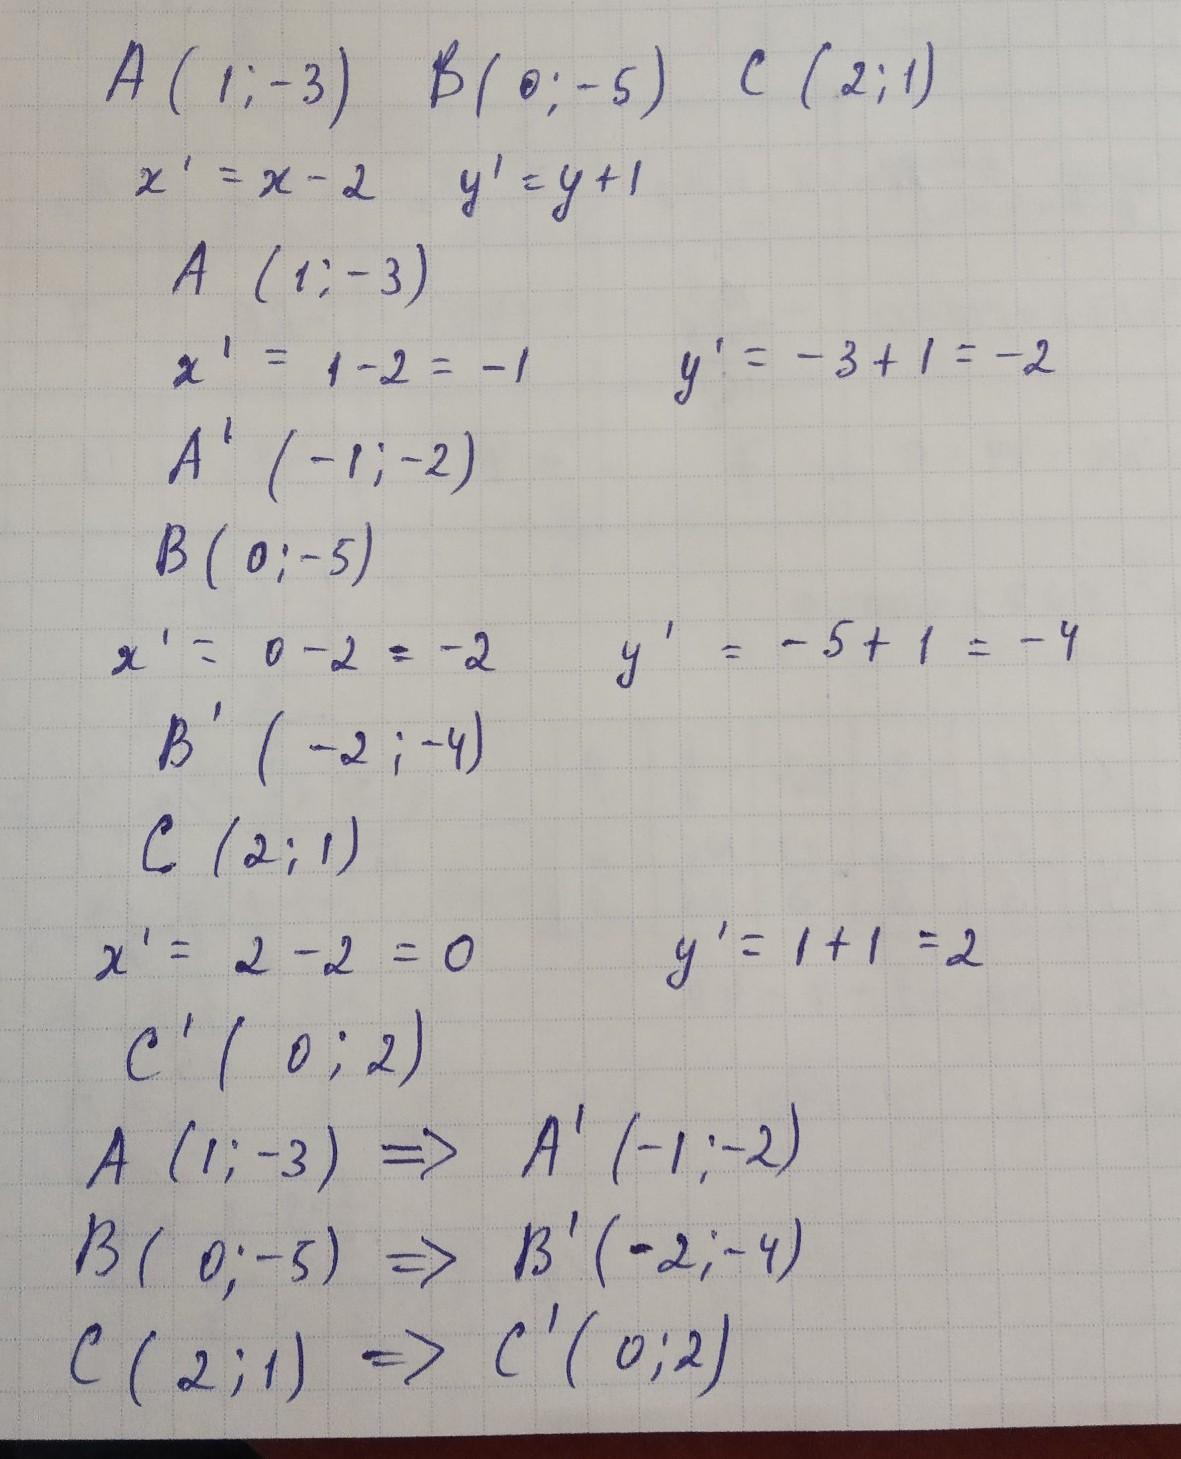 A (1;-3) B(0;-5) C (2;1)
x' = x-2 y' = y+1
A (1;-3)
x' = 1-2 = -1 y' = -3+1 = -2
A' (-1;-2)
B(0;-5)
x' = 0-2 = -2 y' = -5+1 = -4
B' (-2;-4)
C (2;1)
x' = 2-2 = 0 y' = 1+1 = 2
C' (0;2)
A (1;-3) => A' (-1;-2)
B(0;-5) => B' (-2;-4)
C (2;1) => C' (0;2)